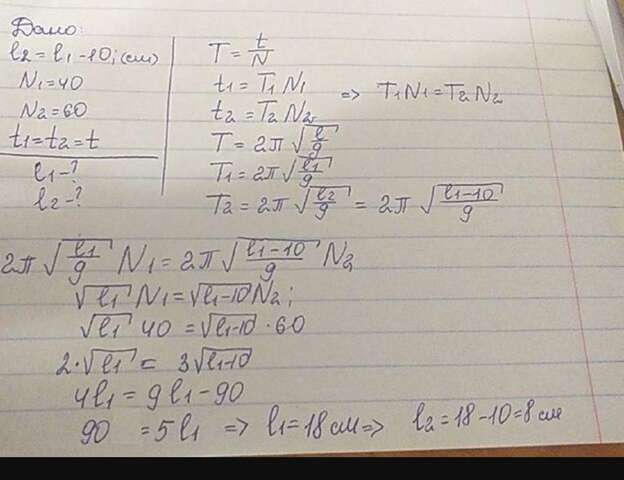 Дано:
l2 = l1 -10; (см)
N1 = 40
N2 = 60
t1 = t2 = t
l1 - ?
l2 - ?
T = t/N
t1 = T1 N1
t2 = T2 N2 => T1N1 = T2N2
T = 2π √(l/g)
T1 = 2π √(l1/g)
T2 = 2π √(l2/g) = 2π √((l1-10)/g)
2π √(l1/g) N1 = 2π √((l1-10)/g) N2
√l1 N1 = √(l1-10) N2;
√l1 40 = √(l1-10) · 60
2·√l1 = 3√(l1-10)
4l1 = 9l1 - 90
90 = 5l1 => l1 = 18 см => l2 = 18 - 10 = 8 см